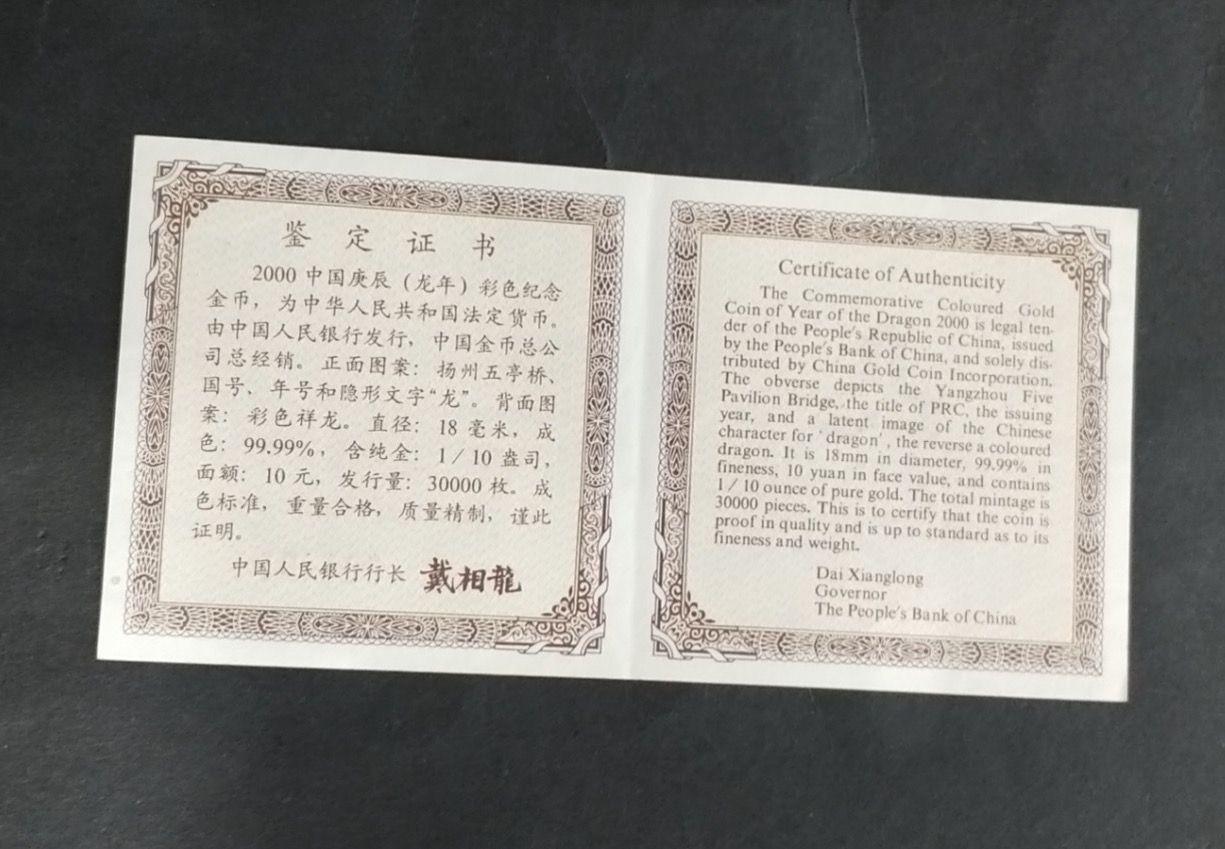 鉴定证书
2000中国庚辰（龙年）彩色纪念
金币，为中华人民共和国法定货币。
由中国人民银行发行，中国金币总公
司总经销。正面图案：扬州五亭桥、
国号、年号和隐形文字“龙”。背面图
案：彩色祥龙。直径：18毫米，成
色：99.99%，含纯金：1/10盎司，
面额：10元，发行量：30000枚。成
色标准，重量合格，质量精制，谨此
证明。
中国人民银行行长 戴相龍
Certificate of Authenticity
The Commemorative Coloured Gold
Coin of Year of the Dragon 2000 is legal ten-
der of the People's Republic of China, issued
by the People's Bank of China, and solely dis-
tributed by China Gold Coin Incorporation.
The obverse depicts the Yangzhou Five
Pavilion Bridge, the title of PRC, the issuing
year, and a latent image of the Chinese
character for 'dragon', the reverse a coloured
dragon. It is 18mm in diameter, 99.99% in
fineness, 10 yuan in face value, and contains
1/10 ounce of pure gold. The total mintage is
30000 pieces. This is to certify that the coin is
proof in quality and is up to standard as to its
fineness and weight.
Dai Xianglong
Governor
The People's Bank of China